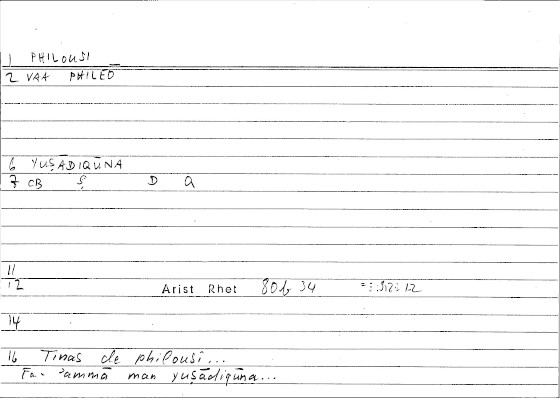 1 PHILOUSI
2 VAA PHILEO
6 YUṢĀDIQŪNA
7 CB Ṣ D Q
11
12 Arist Rhet 80b 34
14
16 Tinas de philousi...
Fa- ʾammā man yuṣādiqūna...